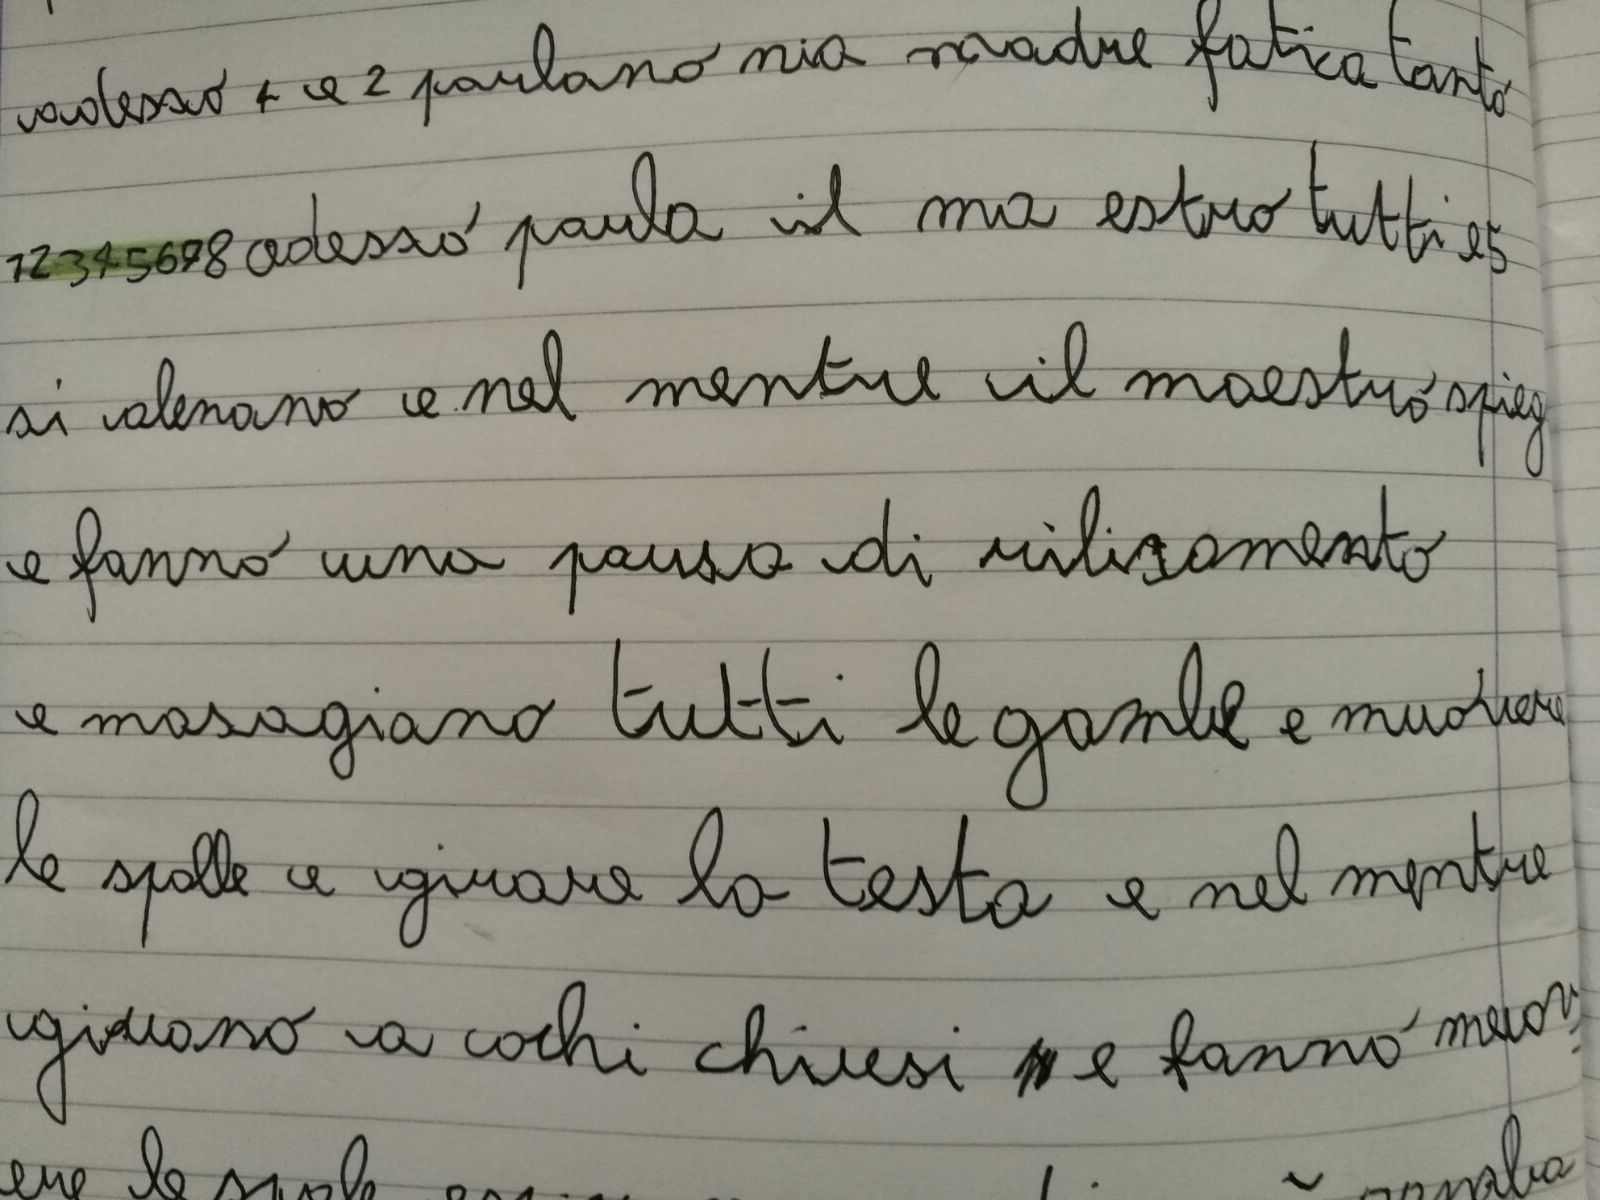 adesso 1 e 2 parlano mia madre fatica tanto
12345678 adesso parla il ma estro tutti e 5
si alenano e nel mentre il maestro spieg
e fanno una pausa di rilizamento
e masagiano tutti le gambe e muovere
le spalle e girare la testa e nel mentre
girano a ochi chiusi e fanno muov
ere le spale